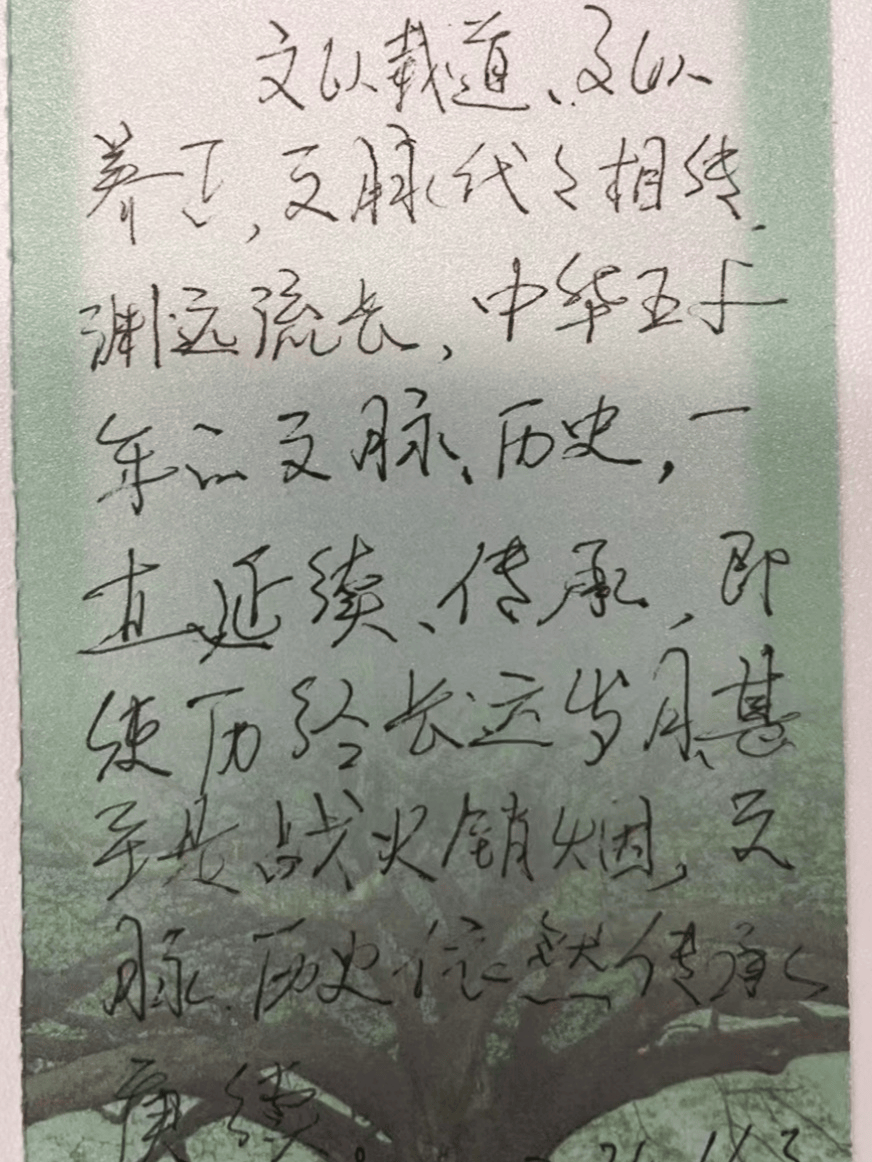 文以载道、文以
养正,文脉代代相传、
渊远流长,中华五千
年的文脉、历史,一
直延续、传承,即
使历经长远岁月、甚
至是战火销烟,文
脉、历史依然传承、
赓续。